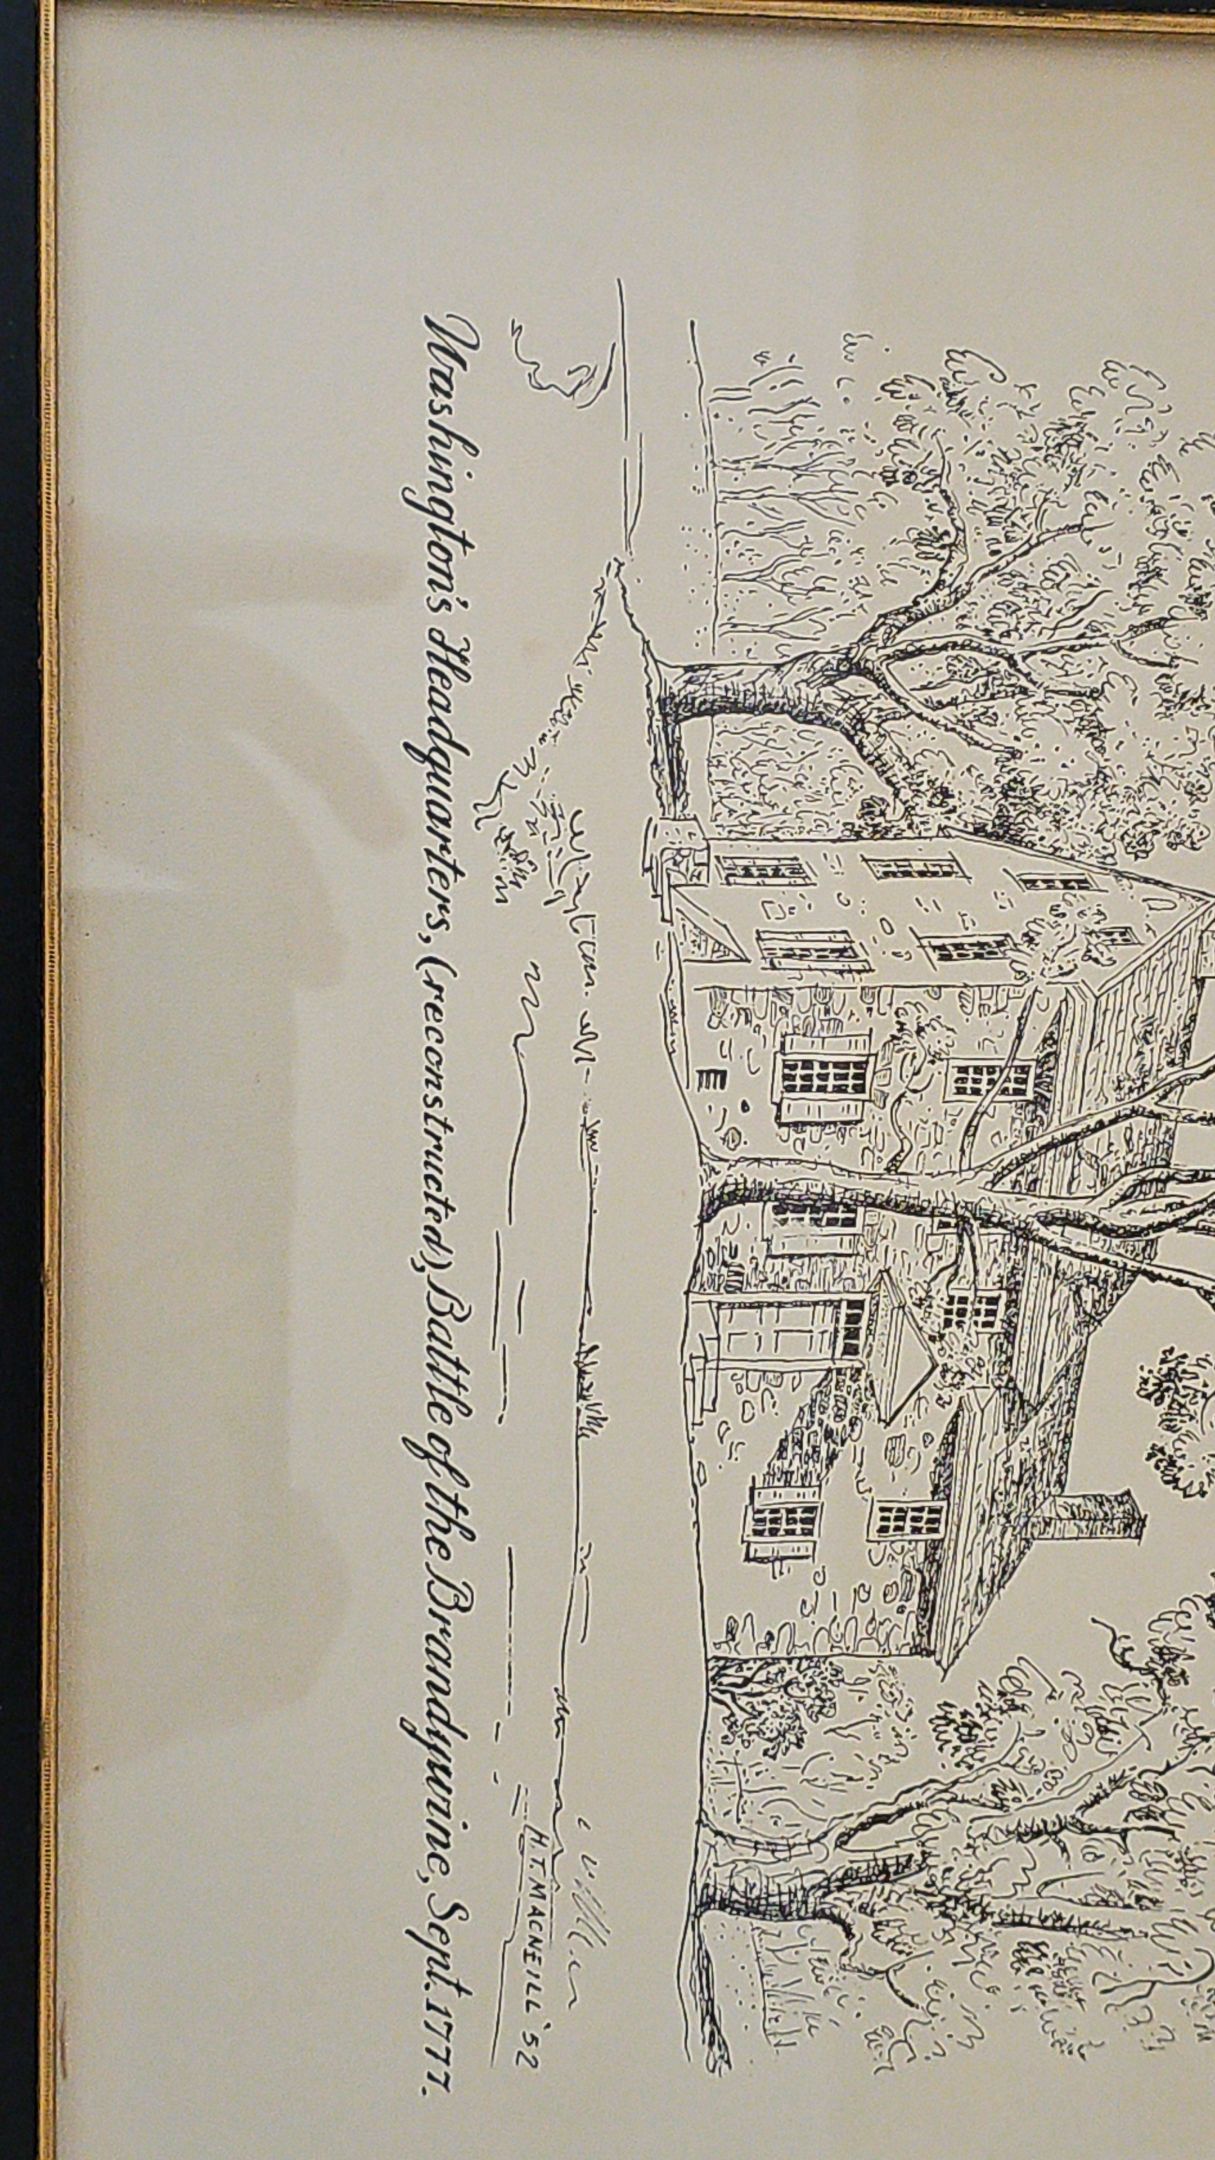 H.T. MACNEILL '52
Washington's Headquarters, (reconstructed), Battle of the Brandywine, Sept. 1777.